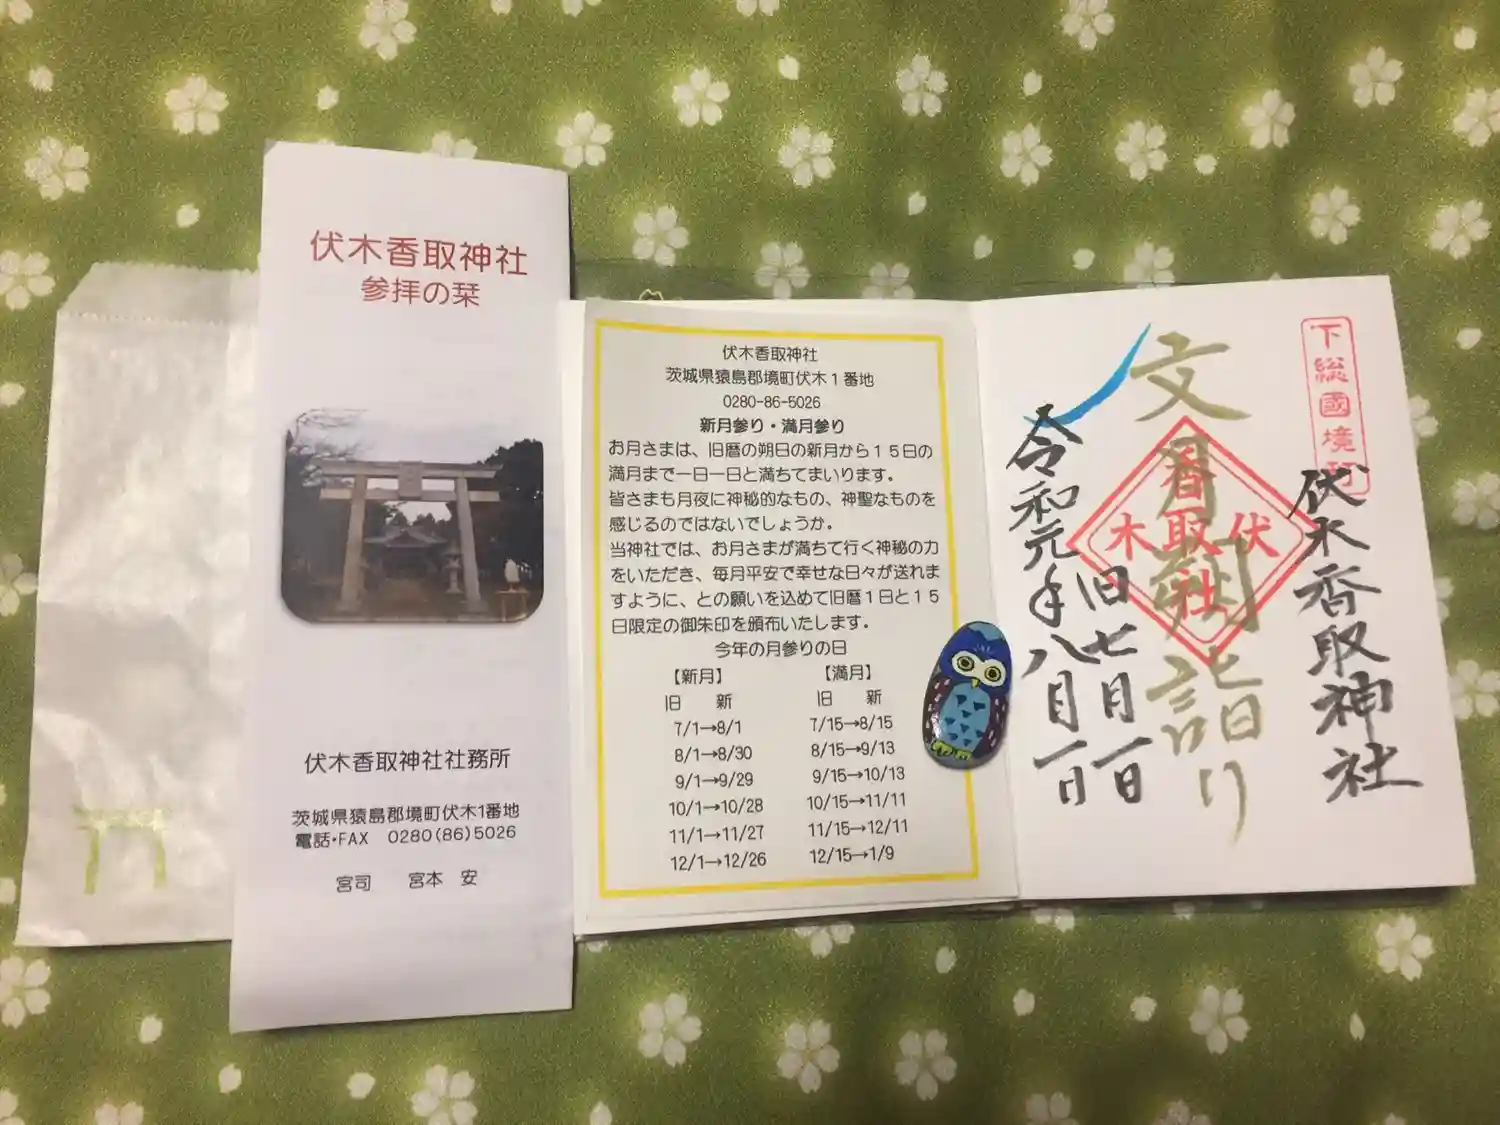 伏木香取神社
参拝の栞
伏木香取神社社務所
茨城県猿島郡境町伏木1番地
電話・FAX 0280(86)5026
宮司 宮本 安
伏木香取神社
茨城県猿島郡境町伏木１番地
0280-86-5026
新月参り・満月参り
お月さまは、旧暦の朔日の新月から１５日の
満月まで一日一日と満ちてまいります。
皆さまも月夜に神秘的なもの、神聖なものを
感じるのではないでしょうか。
当神社では、お月さまが満ちて行く神秘の力
をいただき、毎月平安で幸せな日々が送れま
すように、との願いを込めて旧暦１日と１５
日限定の御朱印を頒布いたします。
今年の月参りの日
【新月】 【満月】
旧 新 旧 新
7/1→8/1 7/15→8/15
8/1→8/30 8/15→9/13
9/1→9/29 9/15→10/13
10/1→10/28 10/15→11/11
11/1→11/27 11/15→12/11
12/1→12/26 12/15→1/9
下総國境町
伏木香取神社
文月朔詣り
香
木取伏
社
旧七月一日
令和元年八月一日